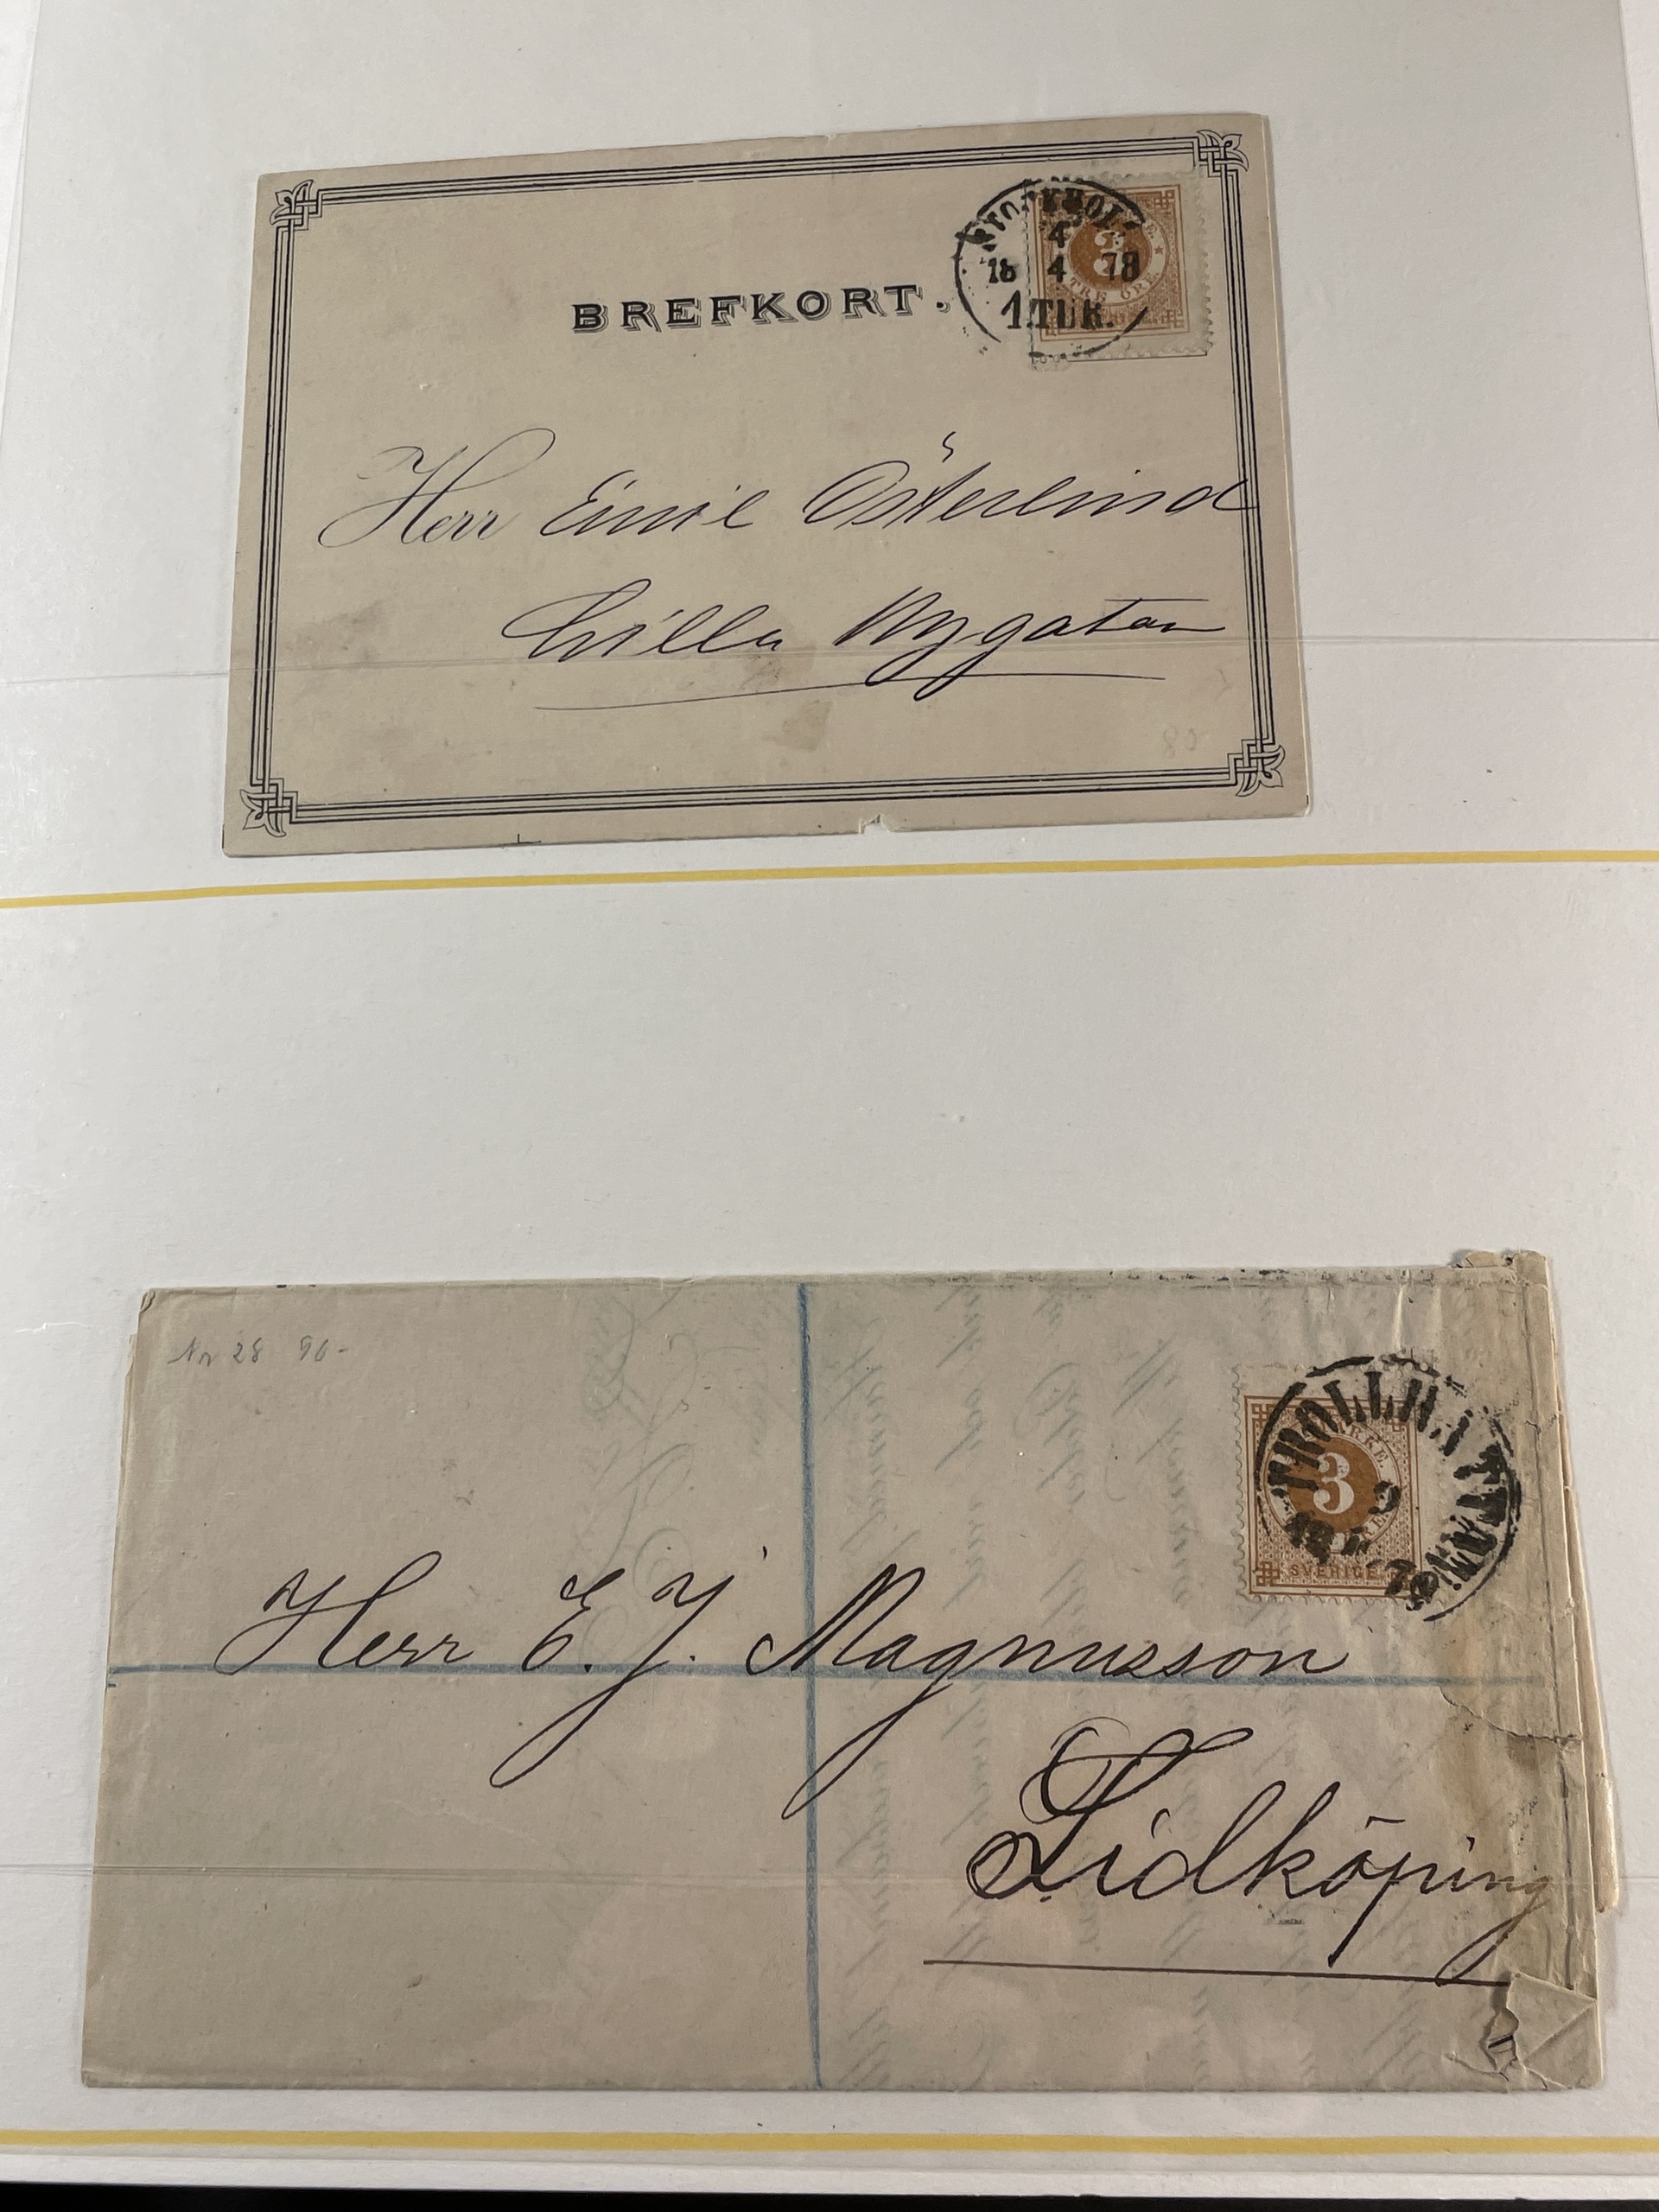 BREFKORT.
STOCKHOLM
4
18 4 78
1.TUR.
3
TRE ÖRE
Herr Emil Österlind
Lilla Nygatan
Nr 28 90-
TROLLHÄTTAN
3
SVERIGE
Herr E. J. Magnusson
Lidköping